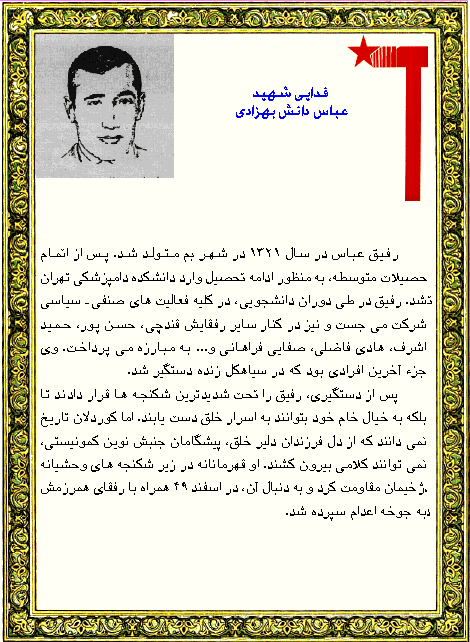 فدایی شهید
عباس دانش بهزادی
رفیق عباس در سال ۱۳۲۱ در شهر بم متولد شد. پس از اتمام
حصیلات متوسطه، به منظور ادامه تحصیل وارد دانشکده دامپزشکی تهران
تشد. رفیق در طی دوران دانشجویی، در کلیه فعالیت های صنفی ـ سیاسی
شرکت می جست و نیز در کنار سایر رفقایش قندچی، حسن پور، حمید
اشرف، هادی فاضلی، صفایی فراهانی و... به مبارزه می پرداخت. وی
جزء آخرین افرادی بود که در سیاهکل زنده دستگیر شد.
پس از دستگیری، رفیق را تحت شدیدترین شکنجه ها قرار دادند تا
بلکه به خیال خام خود بتوانند به اسرار خلق دست یابند. اما کوردلان تاریخ
نمی دانند که از دل فرزندان دلیر خلق، پیشگامان جنبش نوین کمونیستی،
نمی توانند کلامی بیرون کشند. او قهرمانانه در زیر شکنجه های وحشیانه
.ژخیمان مقاومت کرد و به دنبال آن، در اسفند ۴۹ همراه با رفقای همرزمش
دبه جوخه اعدام سپرده شد.